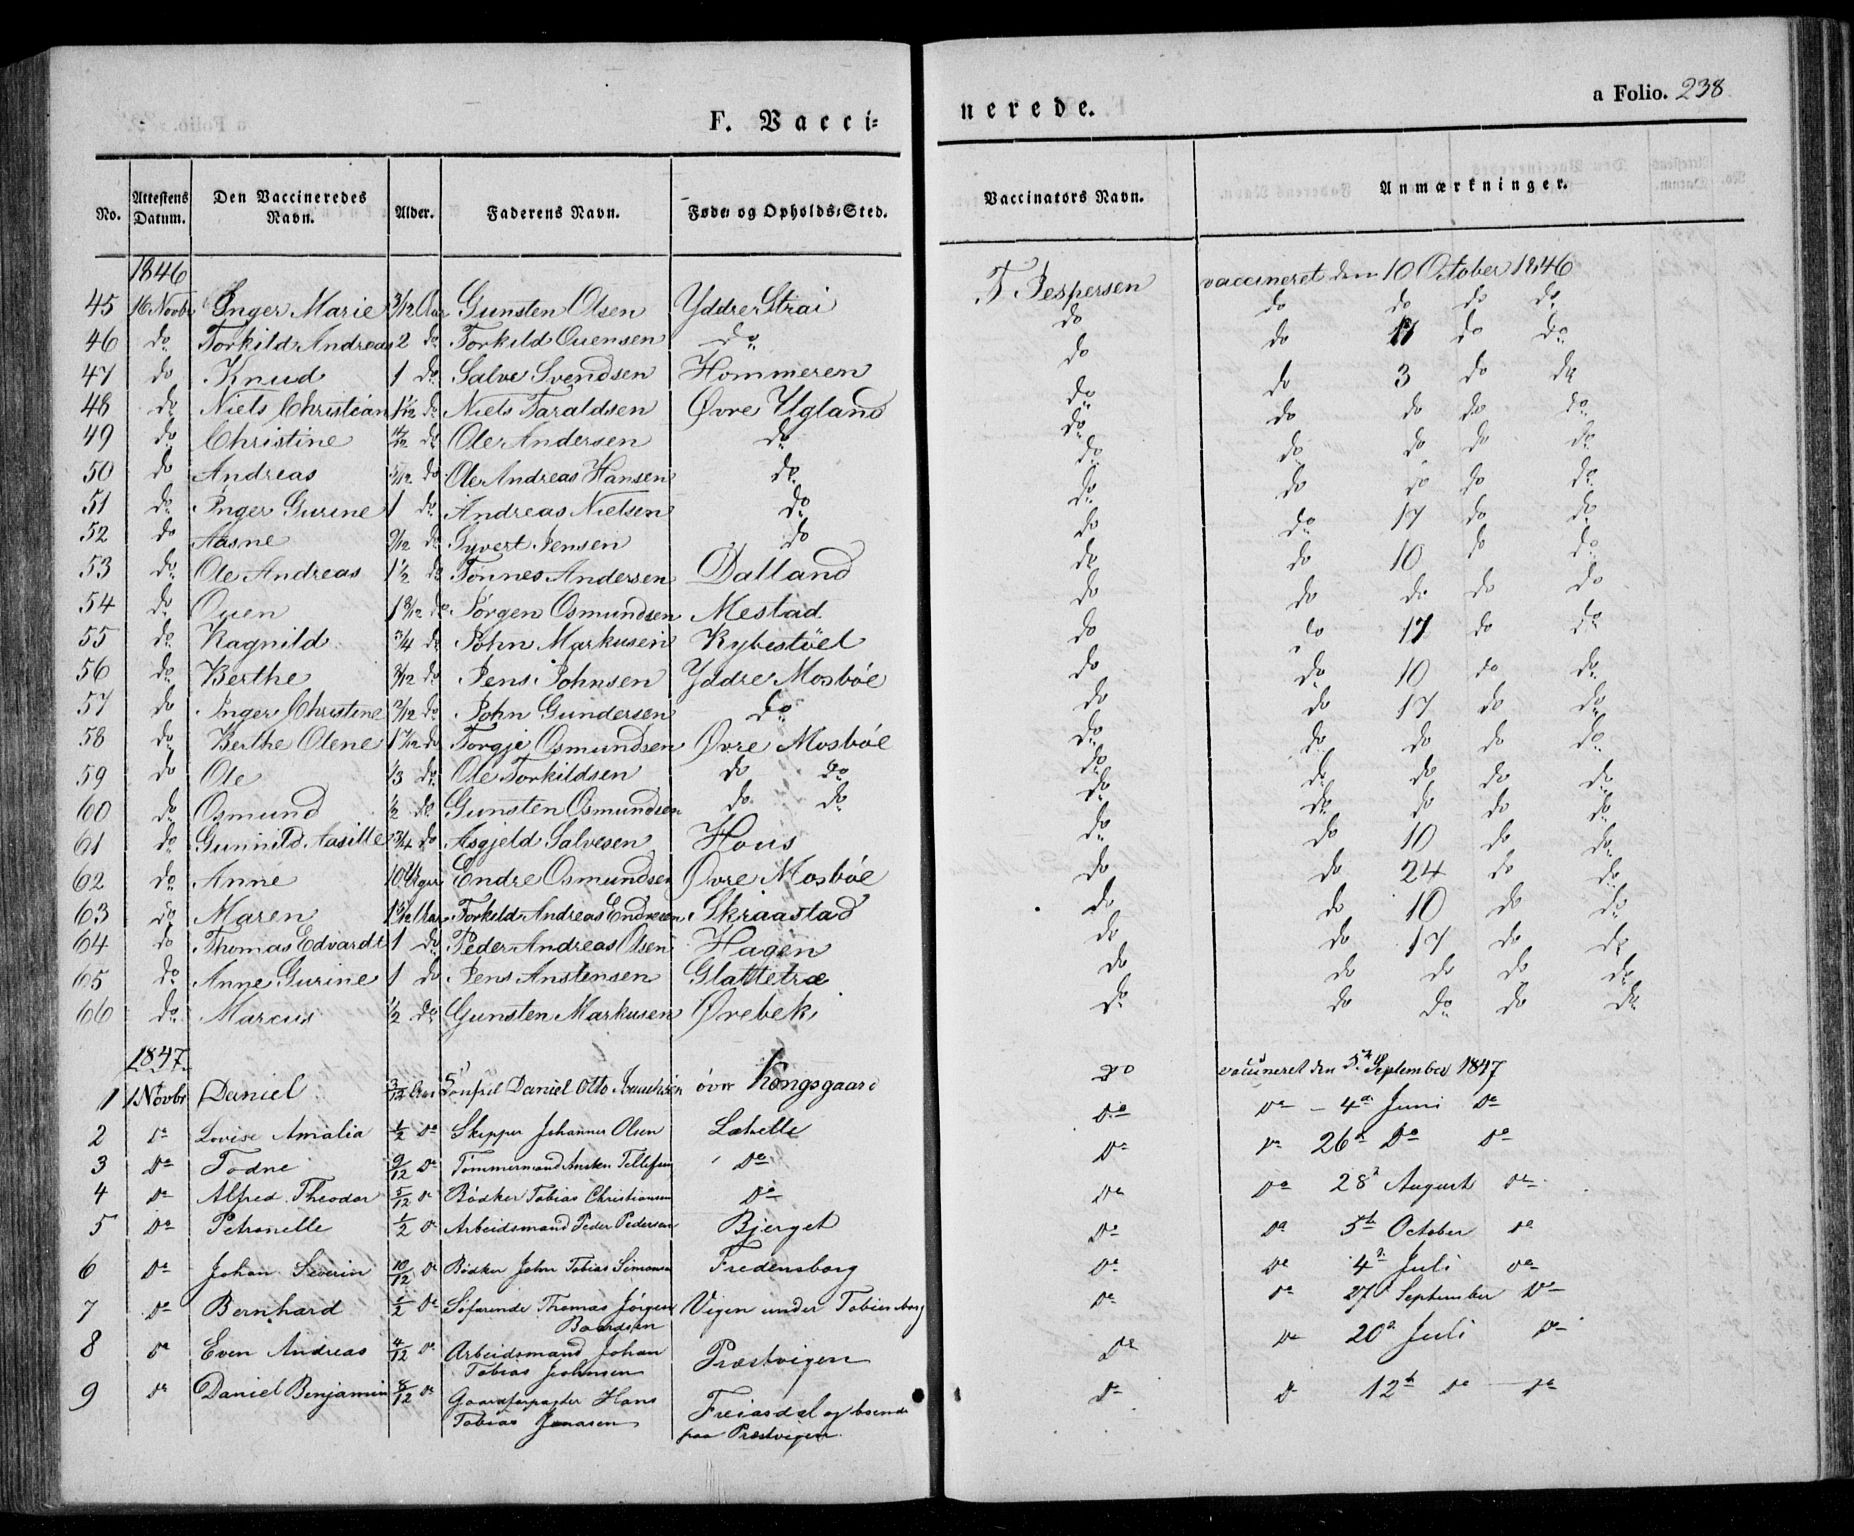 F. Vacci= nerede. a Folio. 238
No. Attestens Datum. Den Vaccineredes Navn. Alder. Faderens Navn. Føde og Opholds-Sted. Vaccinators Navn. Anmærkninger.
1846
45 16 Novbr Inger Marie 3/12 Aar Gunsten Olsen Yddre Strai T. Jespersen vaccineret den 10 October 1846
46 do Torkild Andreas 2 do Torkild Ouensen do do do do do do
47 do Knud 1 do Salve Svendsen Hommeren do do 17 do do
48 do Niels Christian 1 1/12 do Niels Taraldsen Øvre Ugland do do 3 do do
49 do Christine do Ole Andersen do do do do do do
50 do Andreas 5/12 do Ole Andreas Hansen do do do do do do
51 do Inger Gurine 1 do Andreas Nielsen do do do do do do
52 do Aasne 9/12 do Syvert Jensen do do do 17 do do
53 do Ole Andreas 1 1/2 do Tønnes Andersen Dalland do do 10 do do
54 do Ouen 1 8/12 do Jørgen Osmundsen Mestad do do do do do
55 do Ragnild 3/4 do John Markusen Rybestøel do do 17 do do
56 do Berthe 3/12 do Jens Johnsen Yddre Mosbøe do do 10 do do
57 do Inger Christine 2/12 do John Gundersen do do do 17 do do
58 do Berthe Olene do Torgje Osmundsen Øvre Mosbøe do do do do do
59 do Ole 1/3 do Ole Torkildsen do do do do do do do
60 do Osmund 1/2 do Gunsten Osmundsen do do do do do do do
61 do Gunnild Aasille 3/4 do Asgjeld Salvesen Hous do do 10 do do
62 do Anne 10 Uger Endre Osmundsen Øvre Mosbøe do do 24 do do
63 do Maren Aar Torkild Andreas Endresen Skraastad do do 10 do do
64 do Thomas Edvardt 1 do Peder Andreas Olsen Hagen do do 17 do do
65 do Anne Gurine 1 do Jens Anstensen Glattetræ do do do do do
66 do Marcus 1/2 do Gunsten Markusen Ørebek do do do do do
1847
1 1 Novbr Daniel 3/12 Aar Daniel Otto øvre Kongsgaard Do vaccineret den 5te September 1847
2 Do Lovise Amalia 1/2 Do Skipper Johannes Olsen Lahelle Do Do - 4de Juni Do
3 Do Todne 9/12 Do Tømmermand Ansten Tellefsen Do Do Do 26de Do Do
4 Do Alfred Theodor 5/12 Do Bødker Tobias Christiansen Do Do Do 28de August Do
5 Do Petronelle 1/2 Do Arbeidsmand Peder Pedersen Bjerget Do Do 5te October Do
6 Do Johan Severin 10/12 Do Bødker John Tobias Simonsen Fredensborg Do Do 4de Juli Do
7 Do Bernhard 1/2 Do Søfarende Thomas Jørgen Baardsen Vigen under Tobiensborg Do Do 27de September Do
8 Do Even Andreas 4/12 Do Arbeidsmand Johan Tobias Johnsen Præstvigen Do Do 20de Juli Do
9 Do Daniel Benjamin 8/12 Do Gaardforpagter Hans Tobias Jonasen Freiasdal og boende paa Præstvigen Do Do 12te Do Do